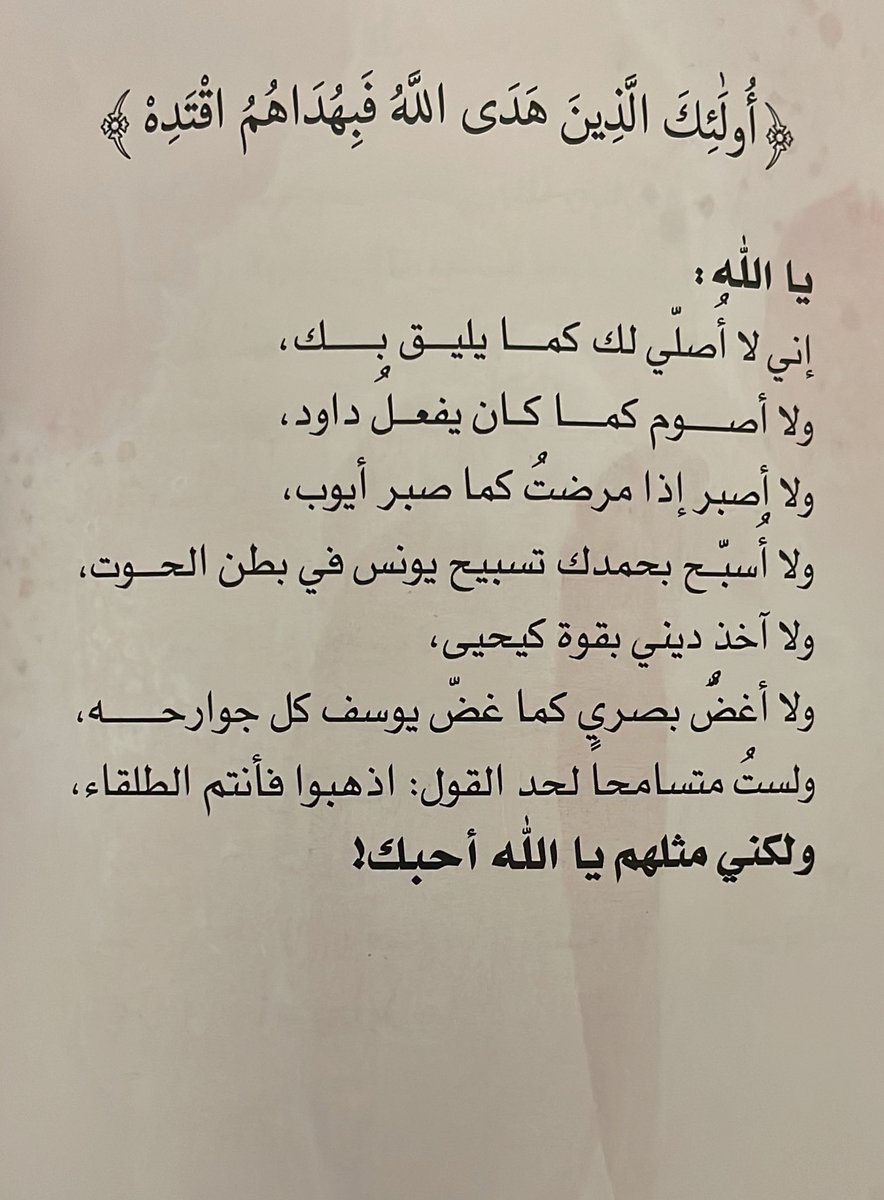 ﴿أُولَٰئِكَ الَّذِينَ هَدَى اللَّهُ فَبِهُدَاهُمُ اقْتَدِهْ﴾
يا الله:
إني لا أُصلّي لك كمــا يليــق بــــك،
ولا أصــــوم كمــــا كــان يفعــلُ داود،
ولا أصبر إذا مرضتُ كما صبر أيوب،
ولا أُسبّــح بحمدك تسبيح يونس في بطن الحــوت،
ولا آخذ ديني بقوة كيحيى،
ولا أغضُّ بصري كما غضّ يوسف كل جوارحـــــه،
ولستُ متسامحاً لحد القول: اذهبوا فأنتم الطلقاء،
ولكني مثلهم يا الله أحبك!